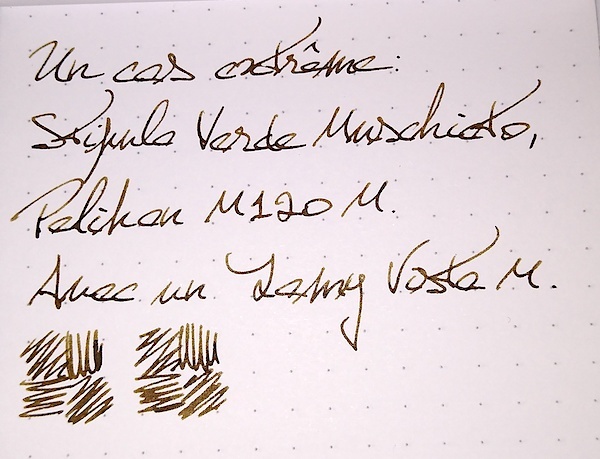 Un cas extrême:
Stipula Verde Muschiato,
Pelikan M120 M.
Avec un Lamy Vista M.